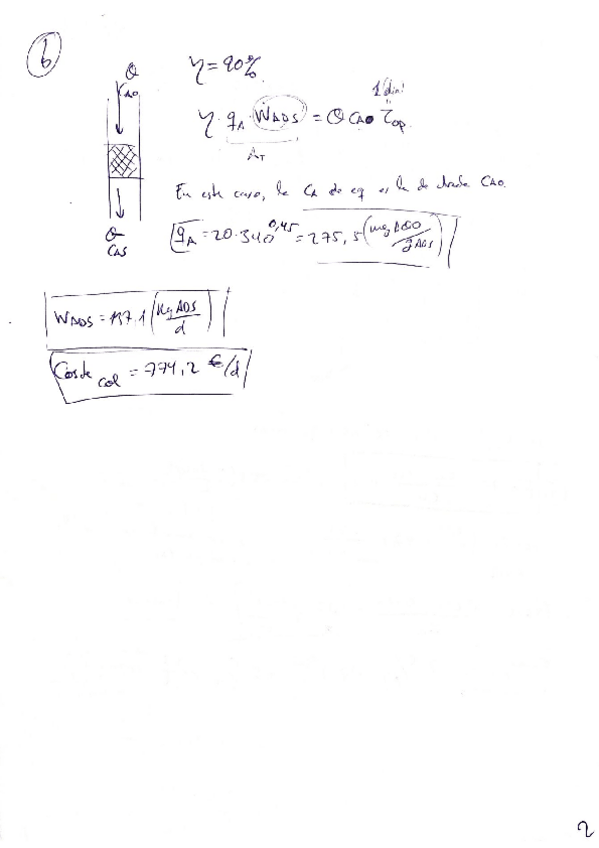 b
Q
CAO
η = 90%
1 día!
η · qA · WADS = Q CAO τop
AT
En este caso, la CA de eq es la de CAO.
Q
CAS
qA = 20·340^0,45 = 275,5 (mg ADSO / g ADS)
WADS = 137,1 (Kg ADS / d)
Coste col = 774,2 €/d
2